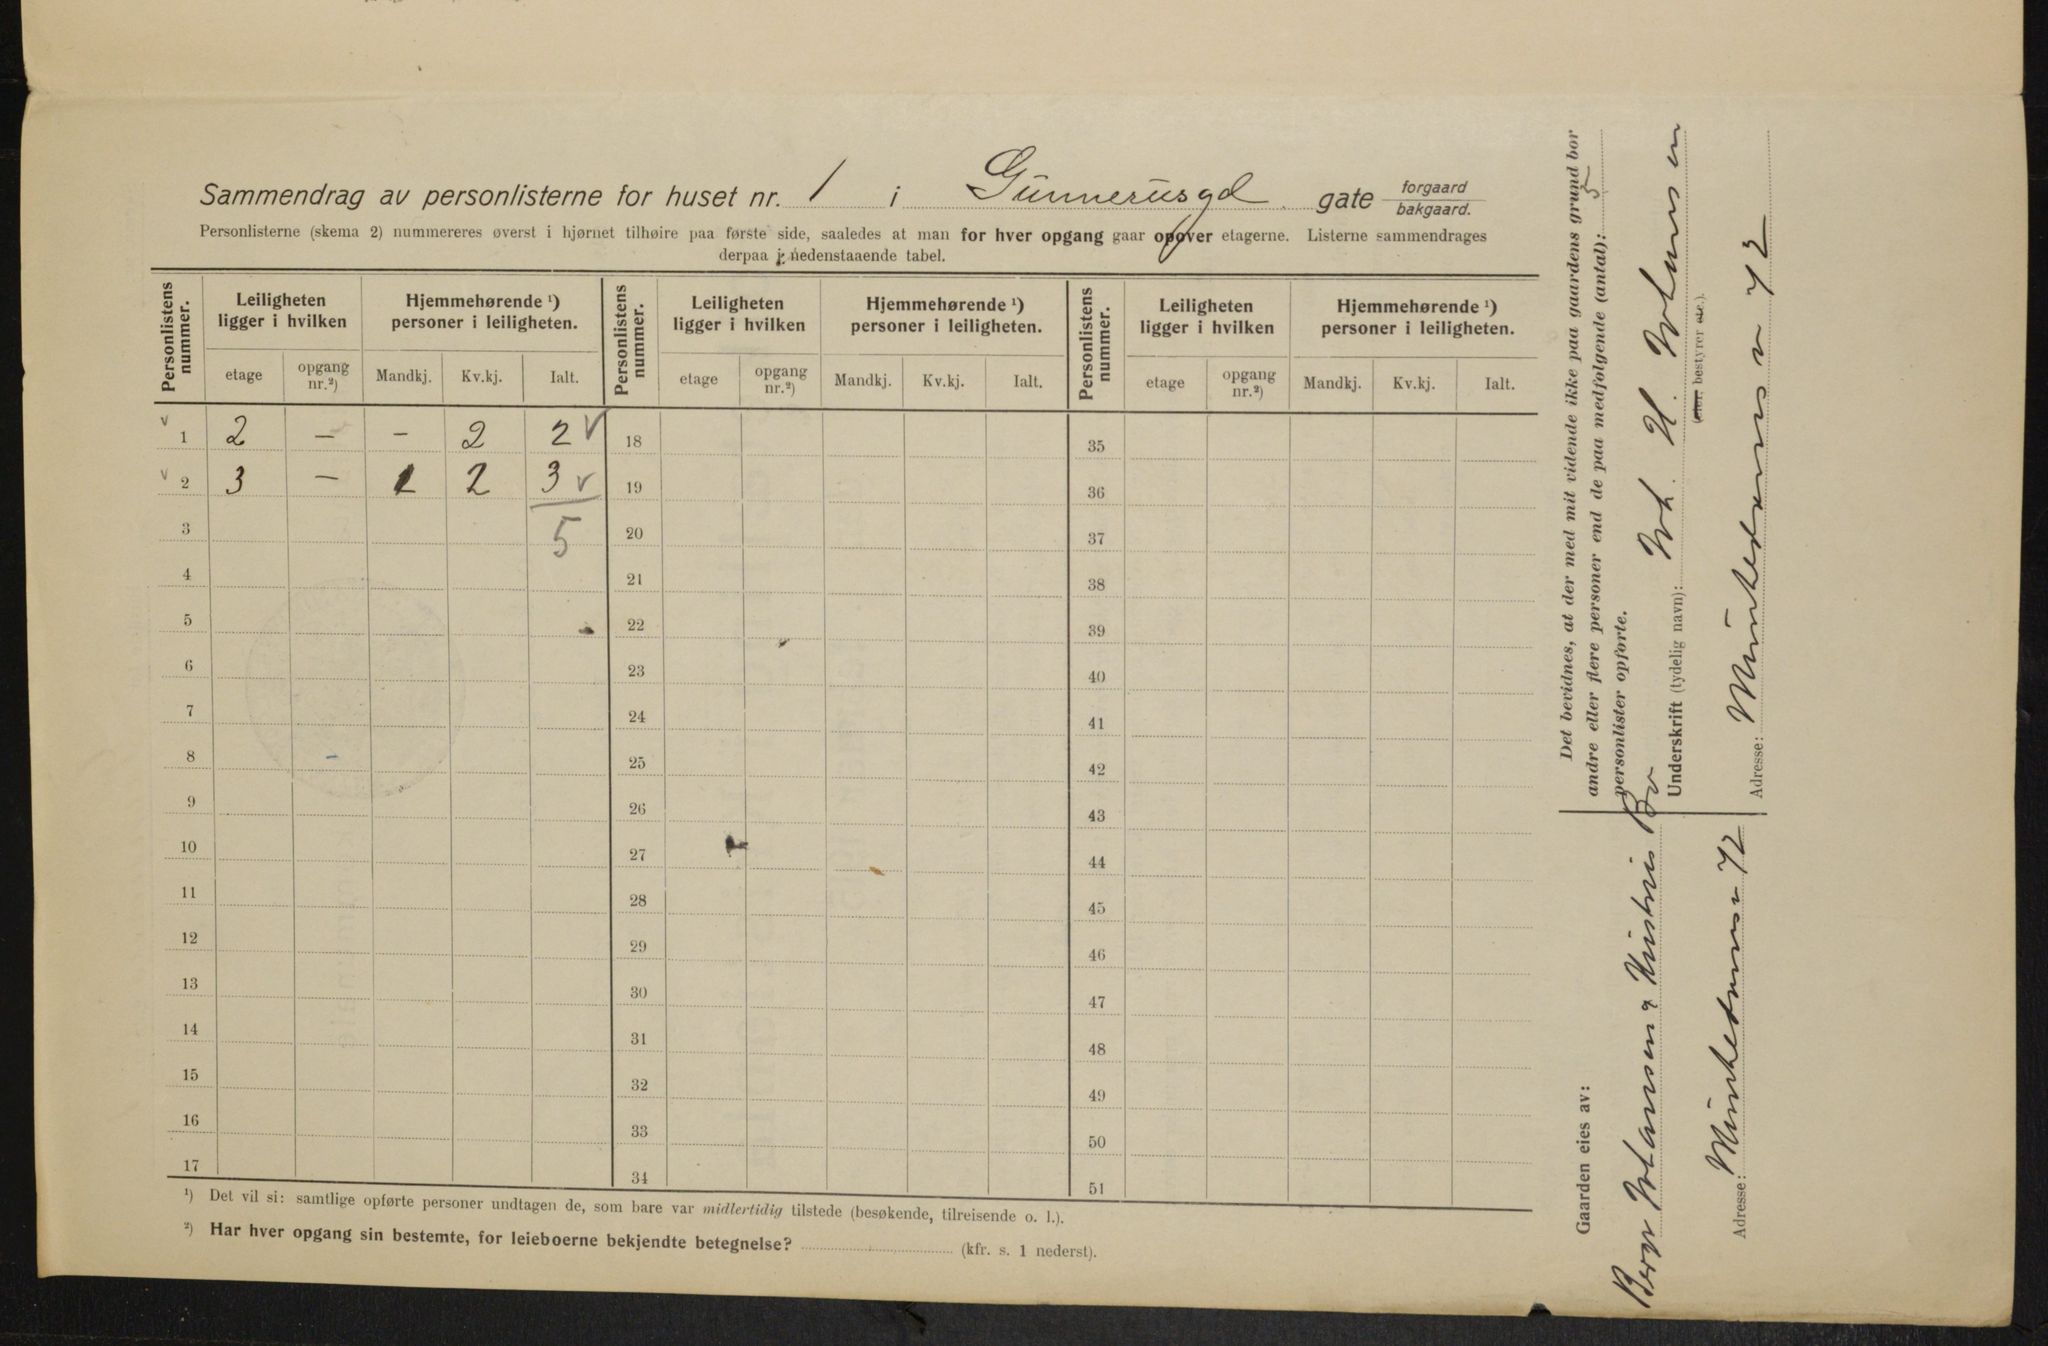 Sammendrag av personlisterne for huset nr. 1 i Gunnerusgd gate forgaard bakgaard.
Personlisterne (skema 2) nummereres øverst i hjørnet tilhøire paa første side, saaledes at man for hver opgang gaar opover etagerne. Listerne sammendrages
derpaa i nedenstaaende tabel.
Personlistens nummer. Leiligheten ligger i hvilken Hjemmehørende ¹) personer i leiligheten. Personlistens nummer. Leiligheten ligger i hvilken Hjemmehørende ¹) personer i leiligheten. Personlistens nummer. Leiligheten ligger i hvilken Hjemmehørende ¹) personer i leiligheten.
etage opgang nr.²) Mandkj. Kv.kj. Ialt. etage opgang nr.²) Mandkj. Kv.kj. Ialt. etage opgang nr.²) Mandkj. Kv.kj. Ialt.
v 1 2 – – 2 2 v 18 35
v 2 3 – 1 2 3 v 19 36
3 5 20 37
4 21 38
5 22 39
6 23 40
7 24 41
8 25 42
9 26 43
10 27 44
11 28 45
12 29 46
13 30 47
14 31 48
15 32 49
16 33 50
17 34 51
¹) Det vil si: samtlige opførte personer undtagen de, som bare var midlertidig tilstede (besøkende, tilreisende o. l.).
²) Har hver opgang sin bestemte, for leieboerne bekjendte betegnelse? (kfr. s. 1 nederst).
Det bevidnes, at der med mit vidende ikke paa gaardens grund bor
andre eller flere personer end de paa medfølgende (antal): 5
personlister opførte.
Underskrift (tydelig navn): Joh. H. Johansen
(eier, bestyrer etc.).
Adresse: Munkedamsv 72
Gaarden eies av:
Johansen &
Adresse: Munkedamsv 72